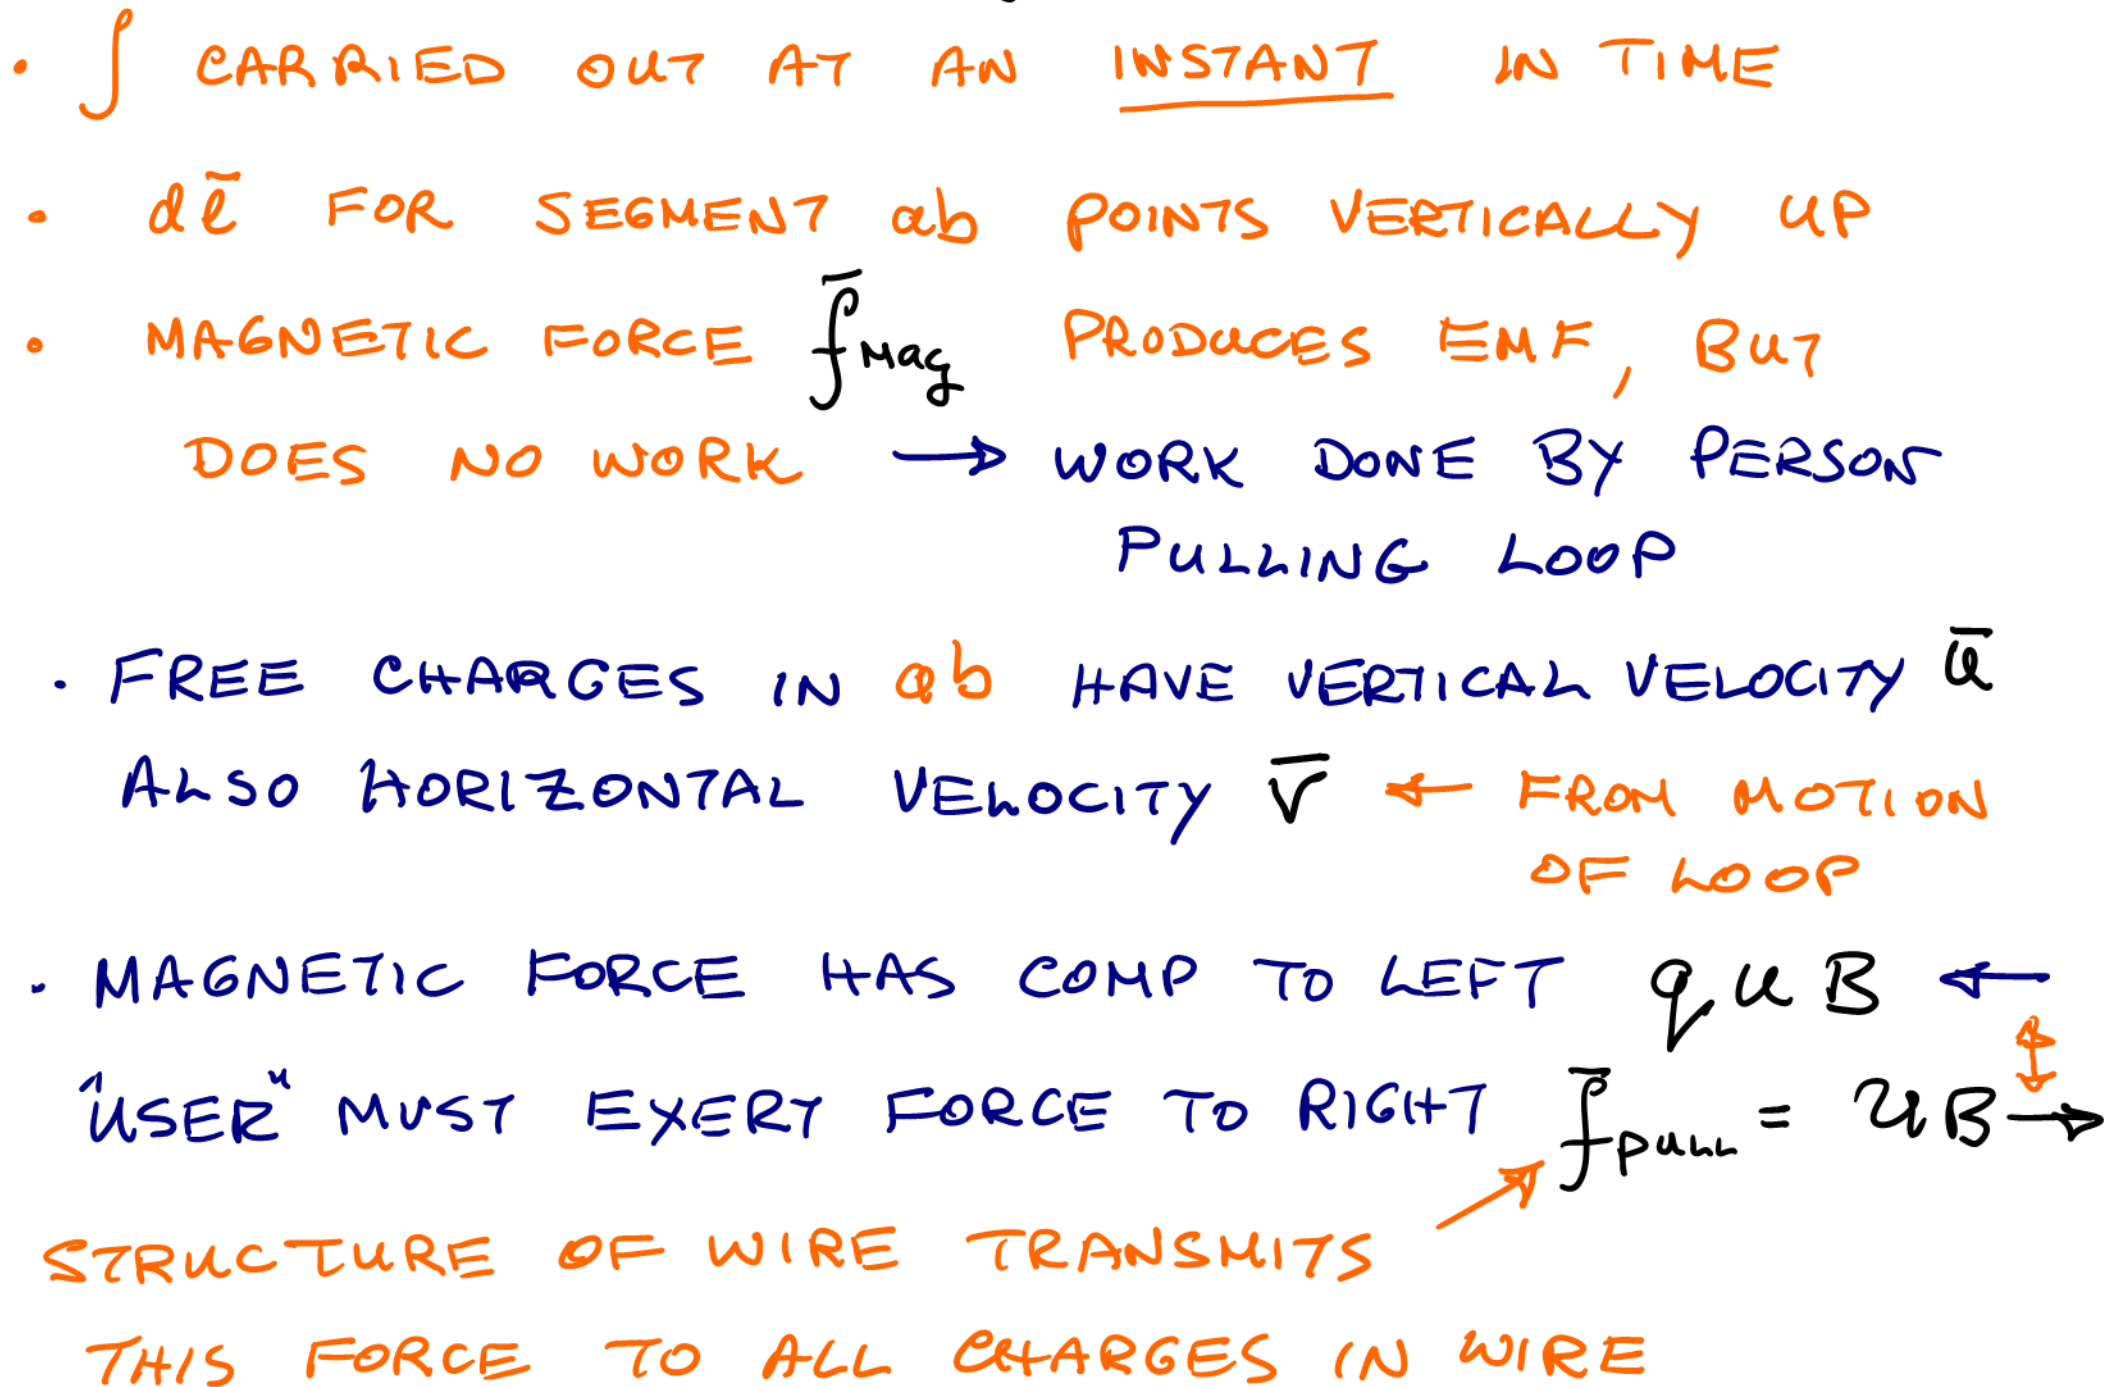 • ∫ CARRIED OUT AT AN INSTANT IN TIME
• dℓ̄ FOR SEGMENT ab POINTS VERTICALLY UP
• MAGNETIC FORCE f̄ Mag PRODUCES EMF, BUT
DOES NO WORK → WORK DONE BY PERSON
PULLING LOOP
• FREE CHARGES IN ab HAVE VERTICAL VELOCITY ū
ALSO HORIZONTAL VELOCITY v̄ ← FROM MOTION
OF LOOP
• MAGNETIC FORCE HAS COMP TO LEFT quB ←
"USER" MUST EXERT FORCE TO RIGHT f̄ PULL = uB →
STRUCTURE OF WIRE TRANSMITS
THIS FORCE TO ALL CHARGES IN WIRE